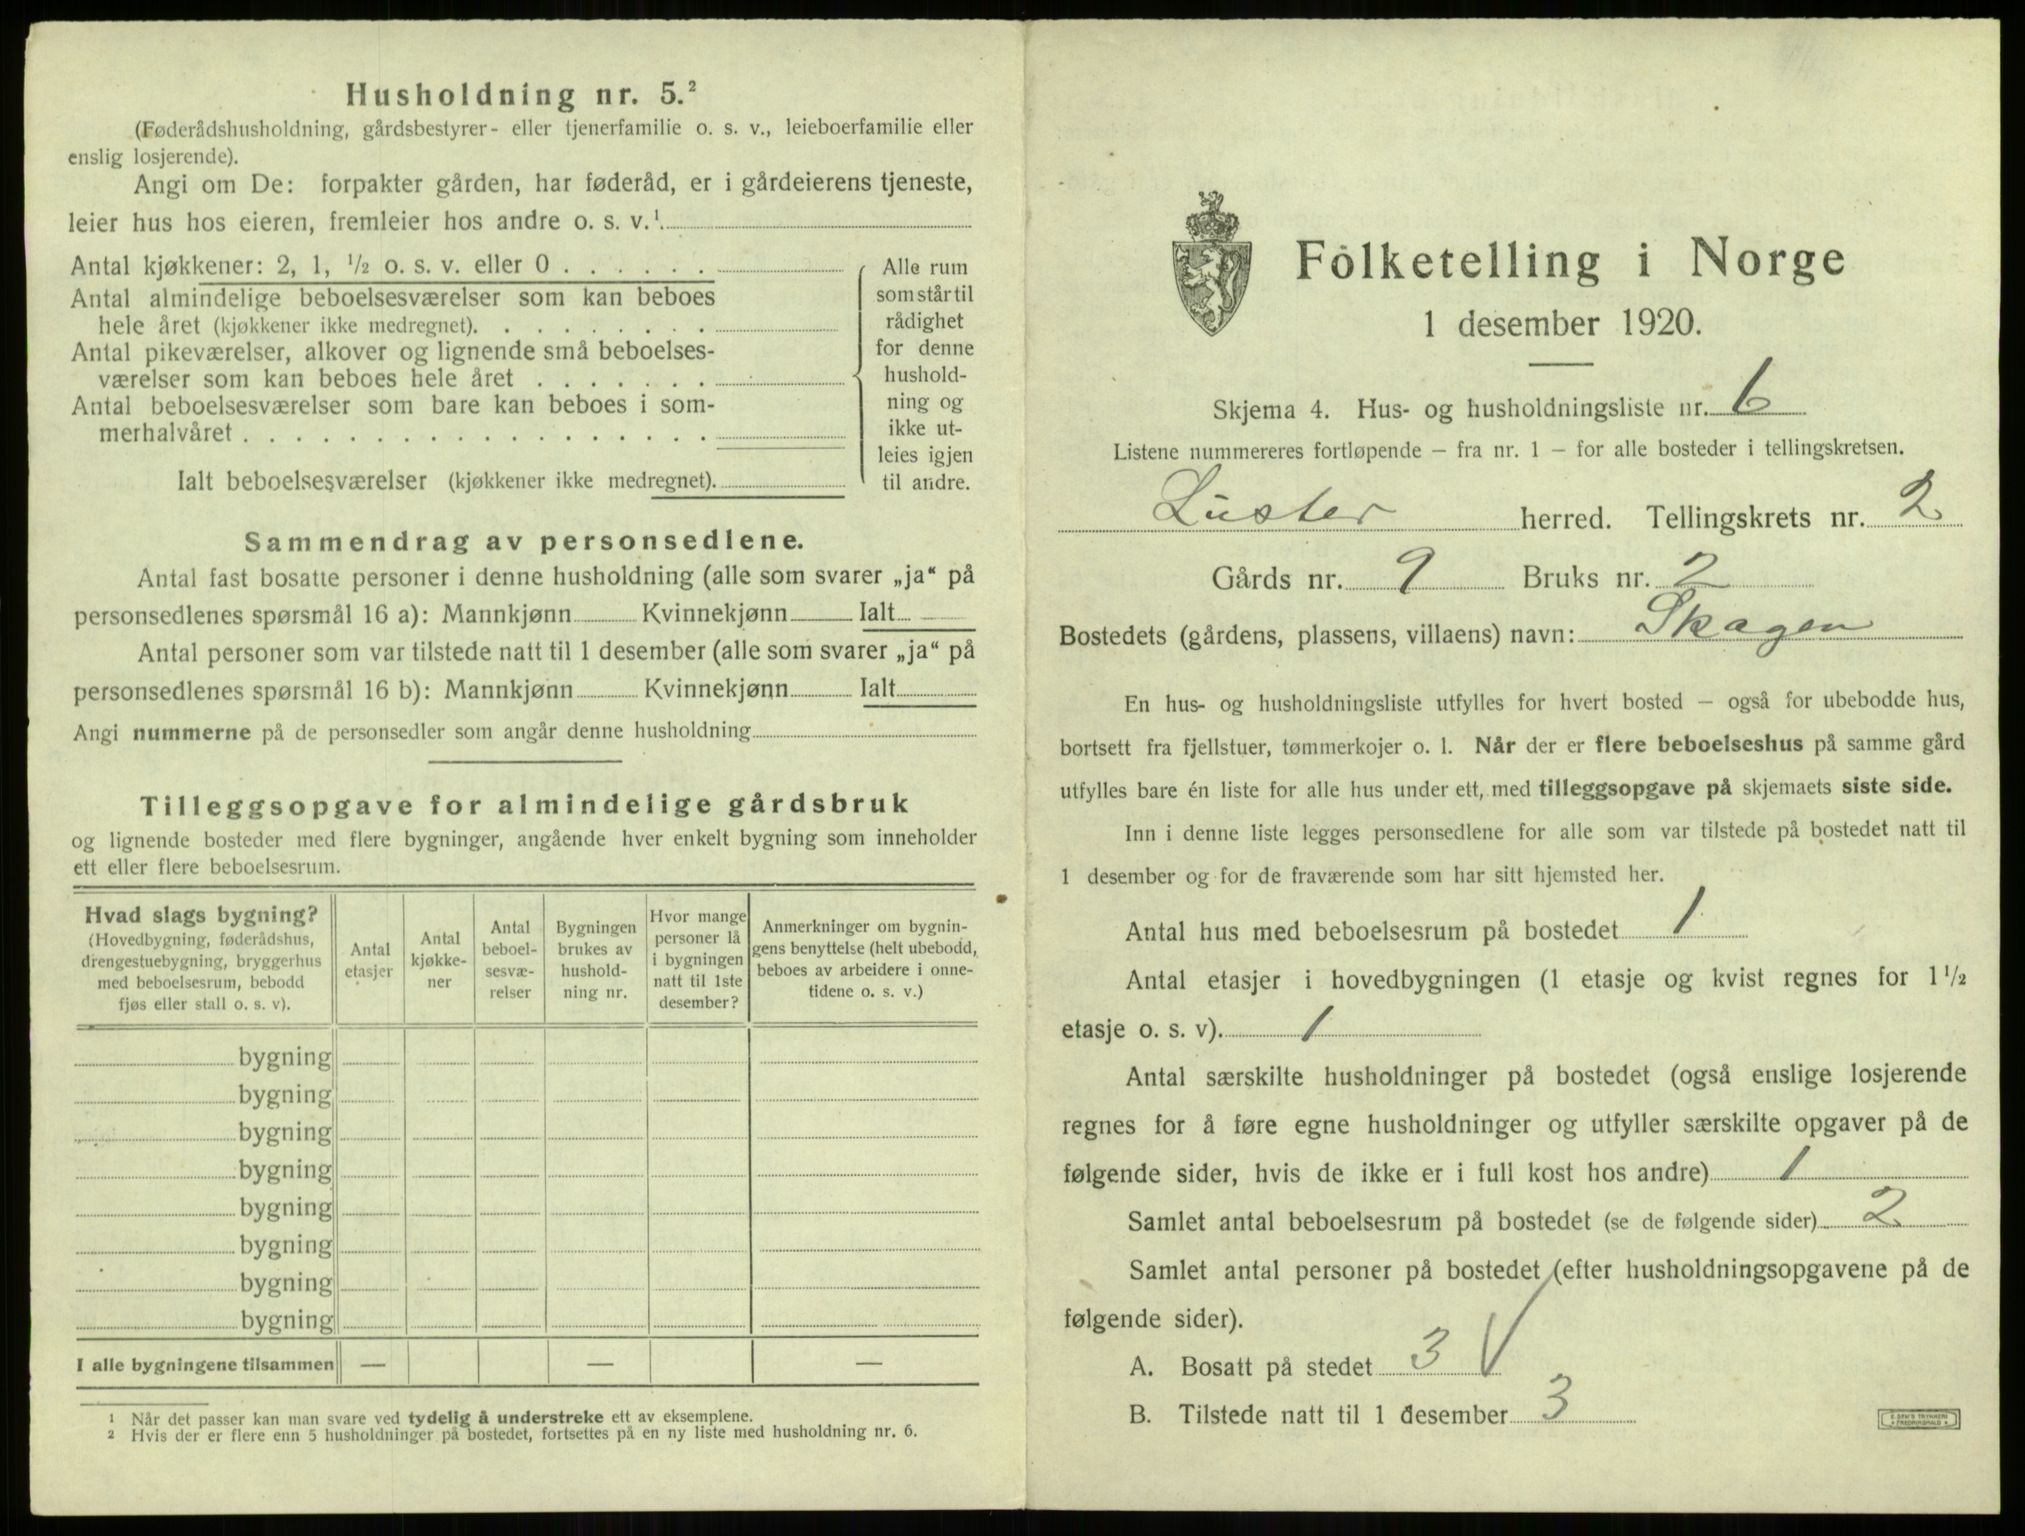 Husholdning nr. 5.²
(Føderådshusholdning, gårdsbestyrer- eller tjenerfamilie o. s. v., leieboerfamilie eller
enslig losjerende).
Angi om De: forpakter gården, har føderåd, er i gårdeierens tjeneste,
leier hus hos eieren, fremleier hos andre o. s. v.¹
Antal kjøkkener: 2, 1, ½ o. s. v. eller 0 . . . . . .
Antal almindelige beboelsesværelser som kan beboes
hele året (kjøkkener ikke medregnet). . . . . . . . .
Antal pikeværelser, alkover og lignende små beboelses-
værelser som kan beboes hele året . . . . . . .
Antal beboelsesværelser som bare kan beboes i som-
merhalvåret . . . . . . . . . . . . . . . . . .
Ialt beboelsesværelser (kjøkkener ikke medregnet).
Alle rum
som står til
rådighet
for denne
hushold-
ning og
ikke ut-
leies igjen
til andre.
Sammendrag av personsedlene.
Antal fast bosatte personer i denne husholdning (alle som svarer „ja“ på
personsedlenes spørsmål 16 a): Mannkjønn Kvinnekjønn Ialt
Antal personer som var tilstede natt til 1 desember (alle som svarer „ja“ på
personsedlenes spørsmål 16 b): Mannkjønn Kvinnekjønn Ialt
Angi nummerne på de personsedler som angår denne husholdning
Tilleggsopgave for almindelige gårdsbruk
og lignende bosteder med flere bygninger, angående hver enkelt bygning som inneholder
ett eller flere beboelsesrum.
Hvad slags bygning?
(Hovedbygning, føderådshus,
drengestuebygning, bryggerhus
med beboelsesrum, bebodd
fjøs eller stall o. s. v).
Antal
etasjer
Antal
kjøkke-
ner
Antal
beboel-
sesvæ-
relser
Bygningen
brukes av
hushold-
ning nr.
Hvor mange
personer lå
i bygningen
natt til 1ste
desember?
Anmerkninger om bygnin-
gens benyttelse (helt ubebodd,
beboes av arbeidere i onne-
tidene o. s. v.)
bygning
bygning
bygning
bygning
bygning
bygning
bygning
bygning
I alle bygningene tilsammen — — —
¹ Når det passer kan man svare ved tydelig å understreke ett av eksemplene.
² Hvis der er flere enn 5 husholdninger på bostedet, fortsettes på en ny liste med husholdning nr. 6.
Folketelling i Norge
1 desember 1920.
Skjema 4. Hus- og husholdningsliste nr. 6
Listene nummereres fortløpende — fra nr. 1 — for alle bosteder i tellingskretsen.
Luster herred. Tellingskrets nr. 2
Gårds nr. 9 Bruks nr. 2
Bostedets (gårdens, plassens, villaens) navn: Skagen
En hus- og husholdningsliste utfylles for hvert bosted — også for ubebodde hus,
bortsett fra fjellstuer, tømmerkojer o. l. Når der er flere beboelseshus på samme gård
utfylles bare én liste for alle hus under ett, med tilleggsopgave på skjemaets siste side.
Inn i denne liste legges personsedlene for alle som var tilstede på bostedet natt til
1 desember og for de fraværende som har sitt hjemsted her.
Antal hus med beboelsesrum på bostedet 1
Antal etasjer i hovedbygningen (1 etasje og kvist regnes for 1½
etasje o. s. v). 1
Antal særskilte husholdninger på bostedet (også enslige losjerende
regnes for å føre egne husholdninger og utfyller særskilte opgaver på de
følgende sider, hvis de ikke er i full kost hos andre) 1
Samlet antal beboelsesrum på bostedet (se de følgende sider) 2
Samlet antal personer på bostedet (efter husholdningsopgavene på de
følgende sider).
A. Bosatt på stedet 3 V
B. Tilstede natt til 1 desember 3